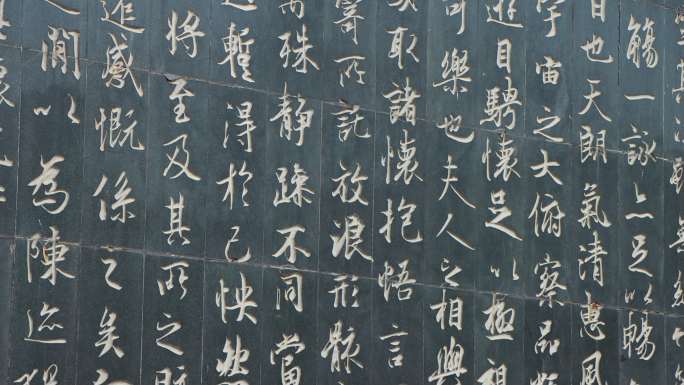 觴一詠亦足以暢
日也天朗氣清惠風
宇宙之大俯察品
遊目騁懷足以極視
可樂也夫人之相與
取諸懷抱悟言
寄所託放浪形骸
殊靜躁不同當
暫得於己快然
將至及其所之既
感慨係之矣
閒以為陳迹